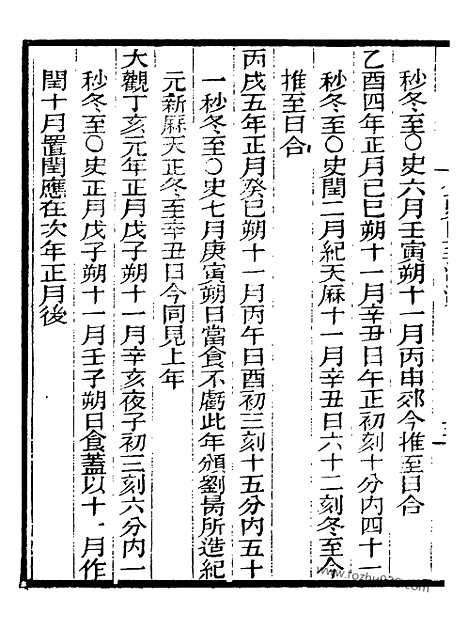 秒冬至〇史六月壬寅朔十一月丙申郊今推至日合
乙酉四年正月己巳朔十一月辛丑日午正初刻十分內四十一
秒冬至〇史閏二月紀天厤十一月辛丑日六十二刻冬至今
推至日合
丙戌五年正月癸巳朔十一月丙午日酉初三刻十五分內五十
一秒冬至〇史七月庚寅朔日當食不虧此年頒劉昺所造紀
元新厤天正冬至辛丑日今同見上年
大觀丁亥元年正月戊子朔十一月辛亥夜子初三刻六分內一
秒冬至〇史正月戊子朔十一月壬子朔日食蓋以十一月作
閏十月置閏應在次年正月後